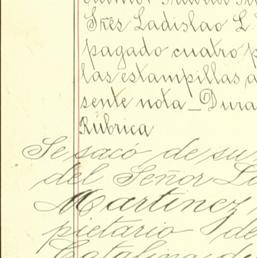 Sres Ladislao L.
pagado cuatro p
las estampillas a
sente nota_Dura
Rúbrica
Se sacó de su
del Señor
Martinez,
pietario de
Catalina